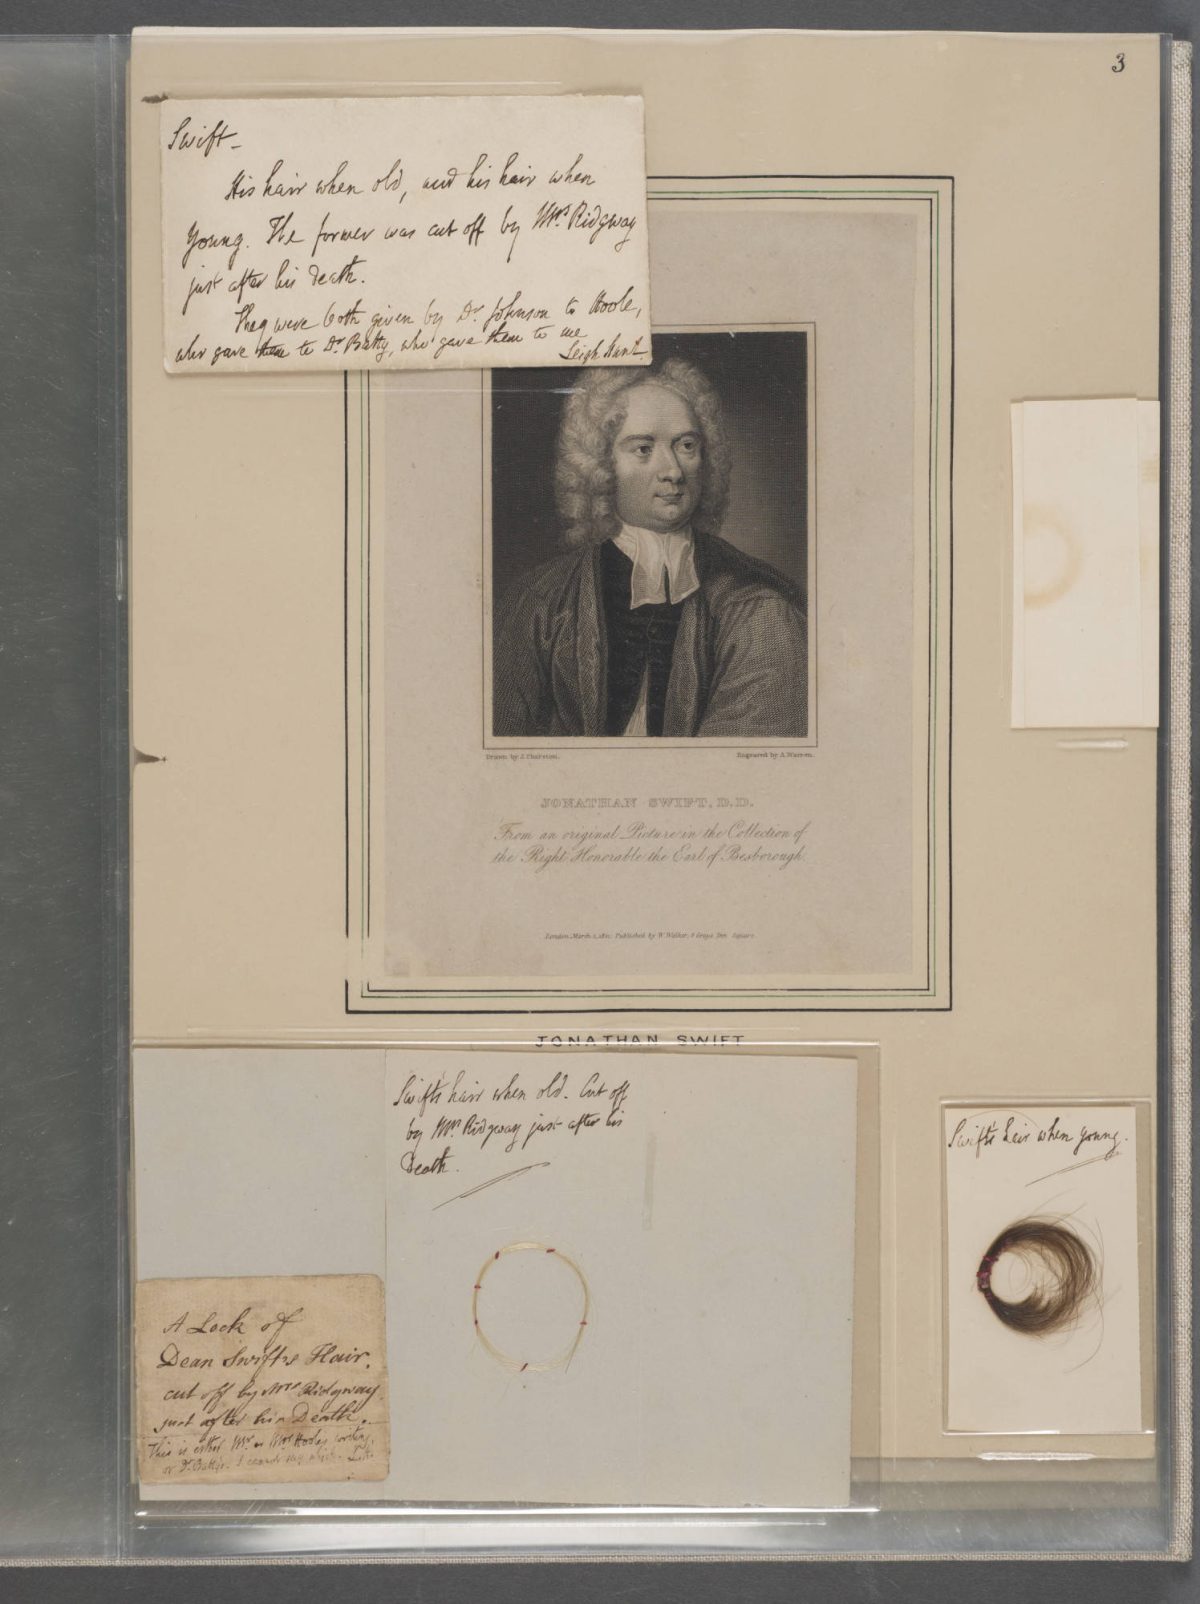 3
Swift —
His hair when old, and his hair when
young. The former was cut off by Mrs. Ridgway
just after his death.
They were both given by Dr. Johnson to Hoole,
who gave them to Dr. Batty, who gave them to me
Leigh Hunt.
Drawn by J. Thurston.
Engraved by A. Warren.
JONATHAN SWIFT, D.D.
From an original Picture in the Collection of
the Right Honorable the Earl of Besborough.
London, March 1, Published by W. Walker, 8 Grays Inn Square.
JONATHAN SWIFT
Swift's hair when old. Cut off
by Mrs. Ridgway just after his
death.
Swift's hair when young.
A Lock of
Dean Swifts Hair.
cut off by Mrs Ridgway
just after his Death.
This is either Mr. or Mrs Hoole's writing,
or Dr. Batty's. I cannot say which.